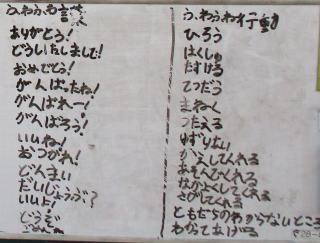 ふわふわ言葉
ありがとう!
どういたしまして!
おめでとう!
がんばったね!
がんばれー!
がんばろう!
いいね!
おつかれ!
どんまい
だいじょうぶ?
いいよ!
どうぞ
ごめんね
ふわふわ行動
ひろう
はくしゅ
たすける
てつだう
まねく
つたえる
ゆずりあい
かえしてくれる
あそんでくれる
なかよくしてくれる
さがしてくれる
ともだちのわからないところ
わかってあげる